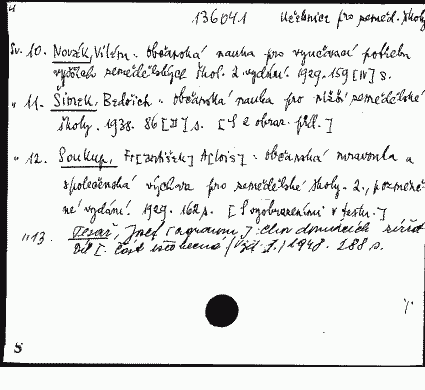 136041 Učebnice pro zeměd. školy
Sv. 10. Novák, Vilém: Občanská nauka pro vyučovací potřebu
vyšších zemědělských škol. 2. vydání. 1929. 159 [IV] s.
" 11. Šimek, Bedřich: Občanská nauka pro nižší zemědělské
školy. 1938. 86 [II] s. [S 2 obraz. příl.]
" 12. Soukup, Fr[antišek] A[lois]: Občanská mravouka a
společenská výchova pro zemědělské školy. 2., pozměně-
né vydání. 1929. 162 s. [S vyobrazeními v textu.]
" 13. Tesař, Josef [agronom]: Chov domácích zvířat
Díl I. Část všeobecná (Vyd. 1.) 1948. 288 s.
S